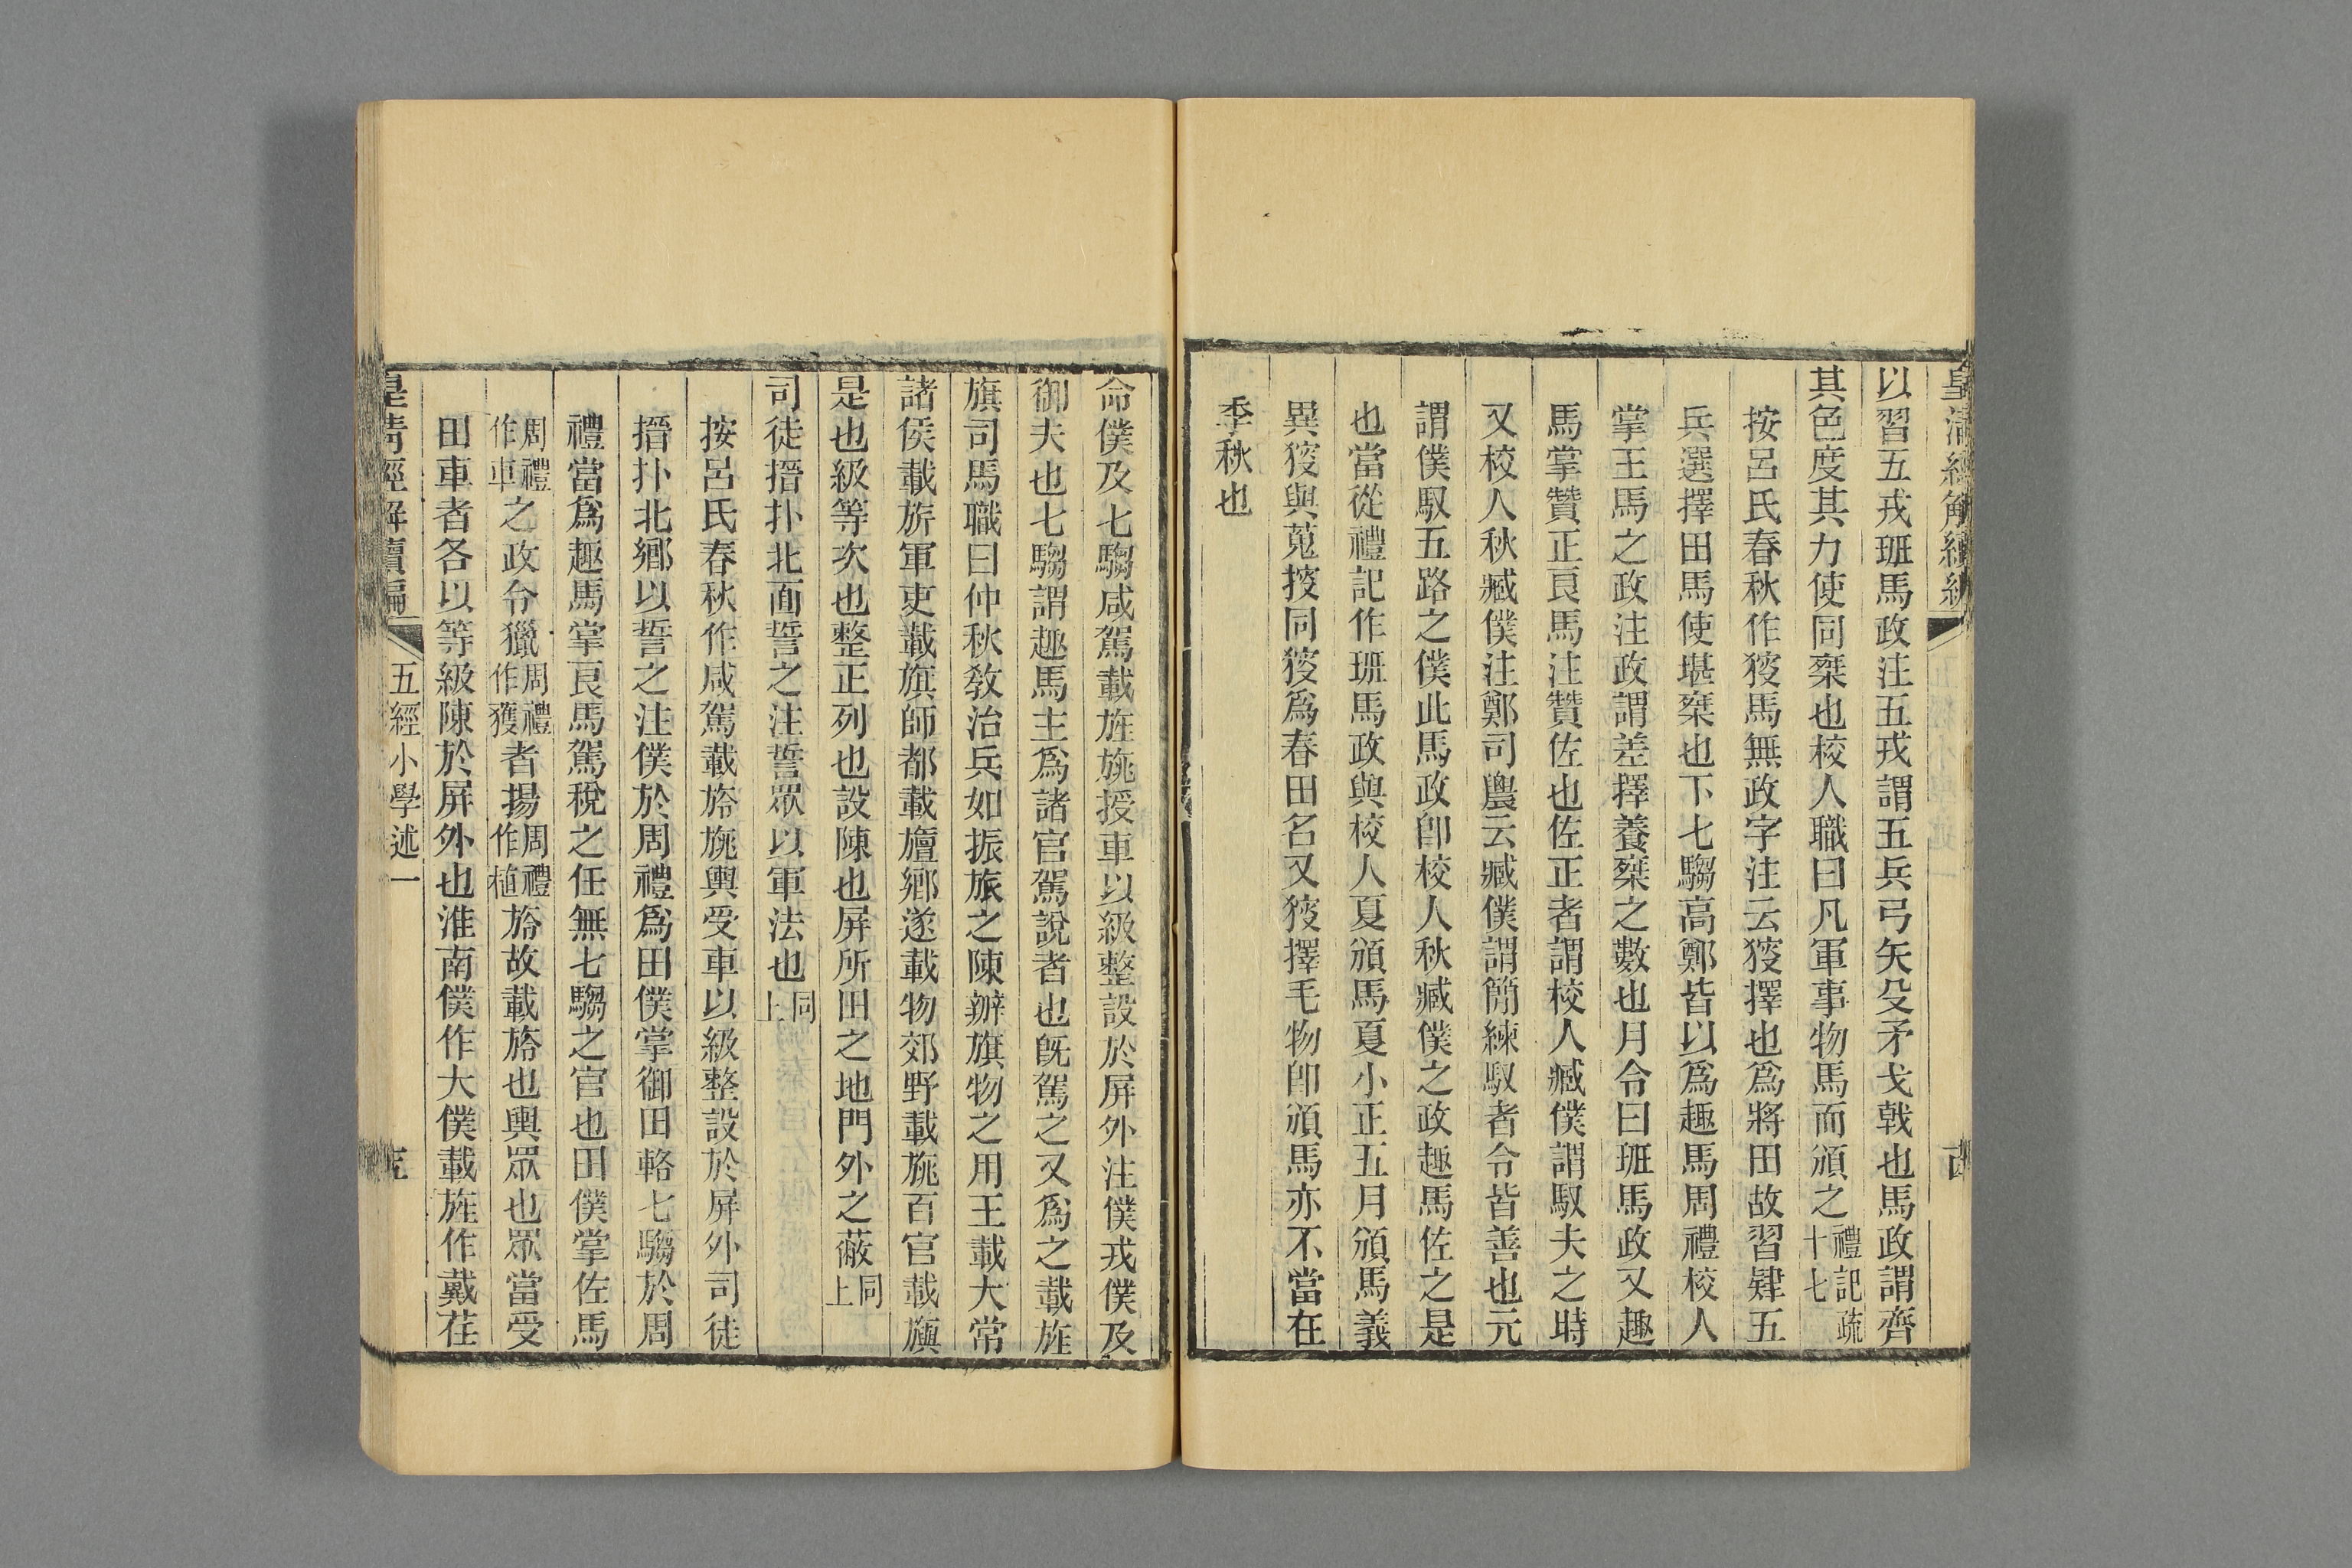 以習五戎班馬政注五戎謂五兵弓矢殳矛戈戟也馬政謂齊
其色度其力使同乘也校人職曰凡軍事物馬而頒之禮記疏十七
按呂氏春秋作㹸馬無政字注云㹸擇也爲將田故習肄五
兵選擇田馬使堪乘也下七騶高鄭皆以爲趣馬周禮校人
掌王馬之政注政謂差擇養乘之數也月令曰班馬政又趣
馬掌贊正良馬注贊佐也佐正者謂校人臧僕謂馭夫之時
又校人秋臧僕注鄭司農云臧僕謂簡練馭者令皆善也元
謂僕馭五路之僕此馬政卽校人秋臧僕之政趣馬佐之是
也當從禮記作班馬政與校人夏頒馬夏小正五月頒馬義
異㹸與蒐搜同㹸爲春田名又㹸擇毛物卽頒馬亦不當在
季秋也
命僕及七騶咸駕載旌旐授車以級整設於屏外注僕戎僕及
御夫也七騶謂趣馬主爲諸官駕說者也旣駕之又爲之載旌
旗司馬職曰仲秋敎治兵如振旅之陳辨旗物之用王載大常
諸侯載旂軍吏載旗師都載旜鄉遂載物郊野載旐百官載旟
是也級等次也整正列也設陳也屏所田之地門外之蔽同上
司徒搢扑北面誓之注誓眾以軍法也同上
按呂氏春秋作咸駕載旍旐輿受車以級整設於屏外司徒
搢扑北鄉以誓之注僕於周禮爲田僕掌御田輅七騶於周
禮當爲趣馬掌良馬駕稅之任無七騶之官也田僕掌佐馬
周禮作車之政令獵周禮作獲者揚周禮作植旍故載旍也輿眾也眾當受
田車者各以等級陳於屏外也淮南僕作大僕載旌作戴荏
五經小學述一